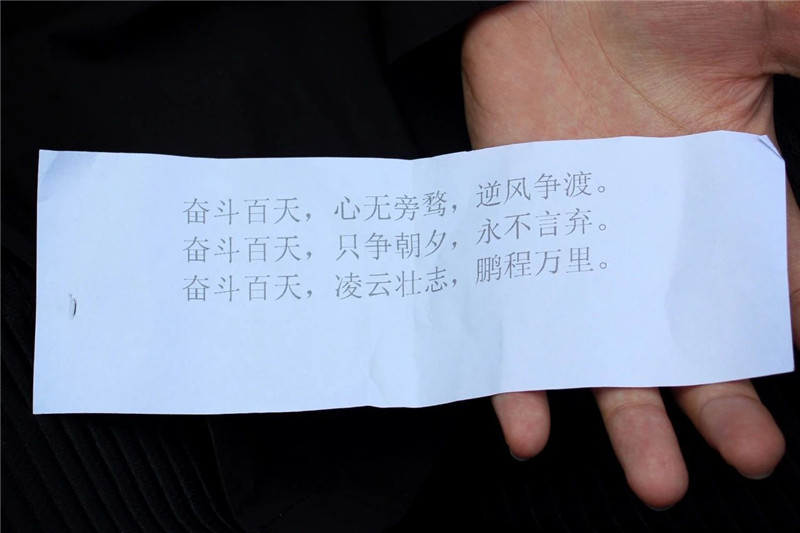 奋斗百天，心无旁骛，逆风争渡。
奋斗百天，只争朝夕，永不言弃。
奋斗百天，凌云壮志，鹏程万里。